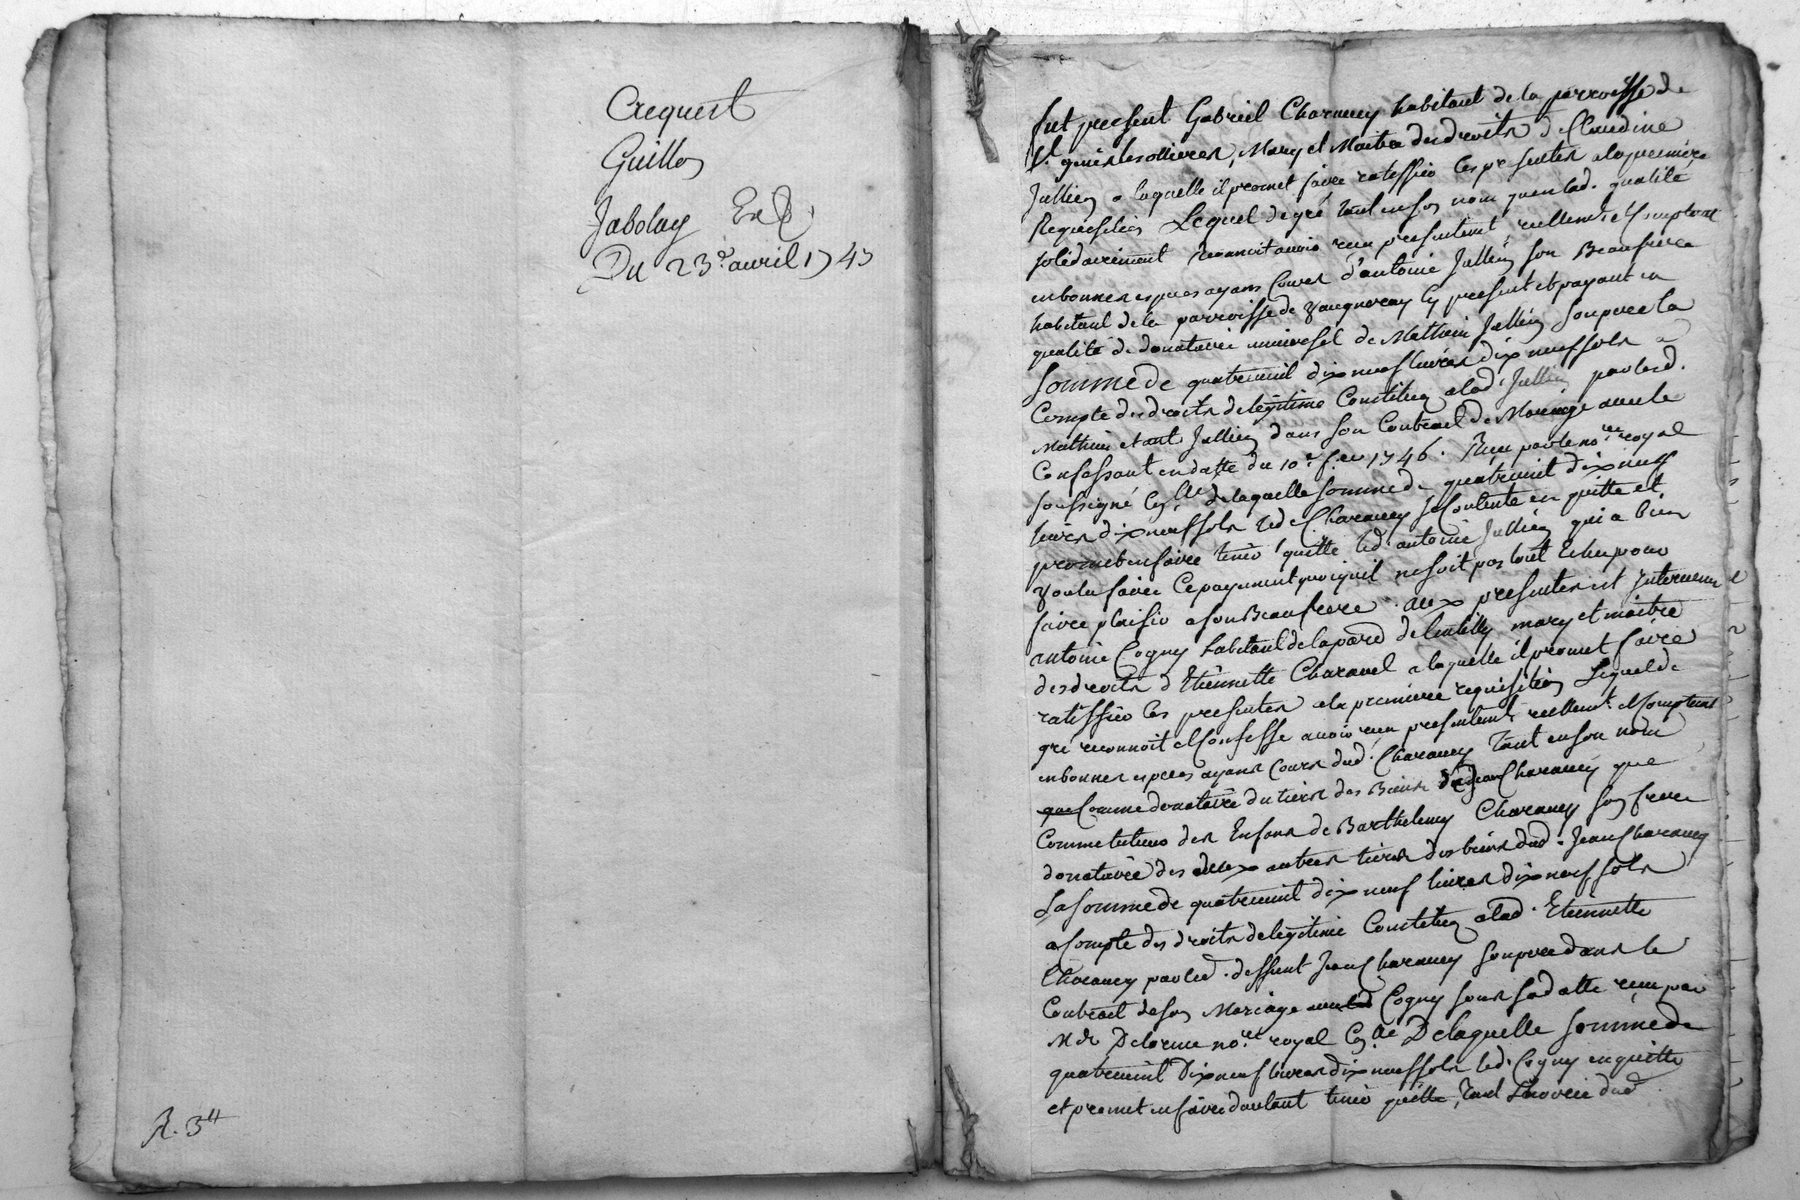 Acquest
Guillon
Jabolay
Du 23e. avril 1747
R. 3tt
fut present Gabriel Charancy habitant de la parroisse de
St. genis les ollieres, Mary et Maitre des droits de Claudine
Jullien a laquelle il promet faire ratiffier ces presentes a la premiere
Requisition Lequel de gré tant en son nom qu'en lad. qualité
solidairement reconnoit avoir reçu presentement reellement et comptant
en bonnes especes ayans cours d'antoine Jullien son Beaufrere
habitant de la parroisse de vaugneray icy present et payant en
qualité de donataire universel de Mathieu Jullien son pere la
somme de quatre cent dix neuf livres dix neuf sols a
Compte des droits de legitime Constitués a lad. Jullien par led.
Mathieu et ant. Jullien dans son Contract de Mariage avec le
Confessant en datte du 10e. f.er 1746. Reçu par le no.re royal
soussigné de laquelle somme de quatre cent dix neuf
livres dix neuf sols led. Charancy se Contente en quitte et
promet en faire tenir quitte led. antoine Jullien qui a bien
voulu faire ce payement quoiqu'il ne soit pas tout Echu pour
faire plaisir a son Beaufrere. aux presentes est Intervenu
antoine Cogny habitant de la par. de lentilly mary et maitre
des droits d'Etiennette Charancy a laquelle il promet faire
ratiffier les presentes a la premiere requisition Lequel de
gré reconnoit et Confesse avoir reçu presentement reellement et comptant
en bonnes especes ayans cours dud. Charancy tant en son nom
que Comme donataire du tiers des Biens de Jean Charancy que
Comme tuteur des Enfans de Barthelemy Charancy son frere
donataire des deux autres tiers des biens dud. Jean Charancy
La somme de quatre cent dix neuf livres dix neuf sols
a Compte des droits de legitime Constitués a lad. Etiennette
Charancy par led. deffunt Jean Charancy son pere dans le
Contract de son Mariage Cogny sous sa datte reçu par
Me Delorme no.re royal De laquelle somme de
quatre cent Dix neuf livres dix neuf sols led. Cogny en quitte
et promet en faire d'autant tenir quitte, tant L'hoirie dud.